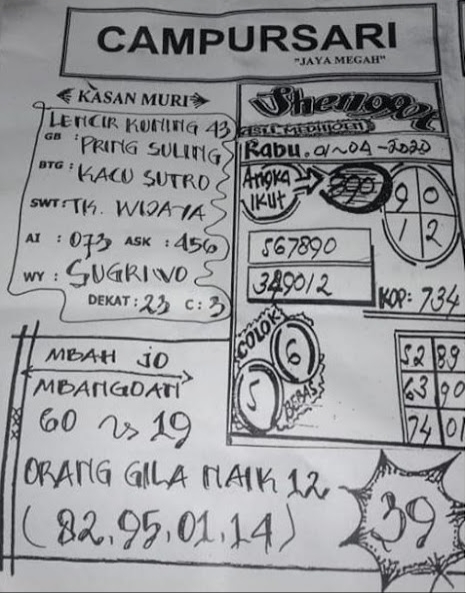 CAMPURSARI
"JAYA MEGAH"
KASAN MURI
LENCIR KUNING 43
GB : PRING SULING
BTG : KACU SUTRO
SWT : TK. WIJAYA
AI : 073 ASK : 456
WY : SUGRIWO
DEKAT : 23 C : 3
Rabu. 01-04-2020
ANGKA IKUT
9 0
1 2
567890
349012
KOP: 734
COLOK
6
5
BEBAS
52 89
63 90
74 01
MBAH JO
60 vs 19
ORANG GILA NAIK 12
(82,95,01,14)
39